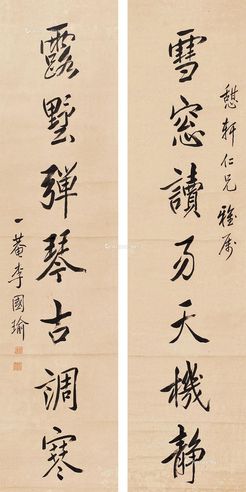 憇軒仁兄雅属
雪窓讀易天機静
露墅彈琴古調寒
一菴李國瑜